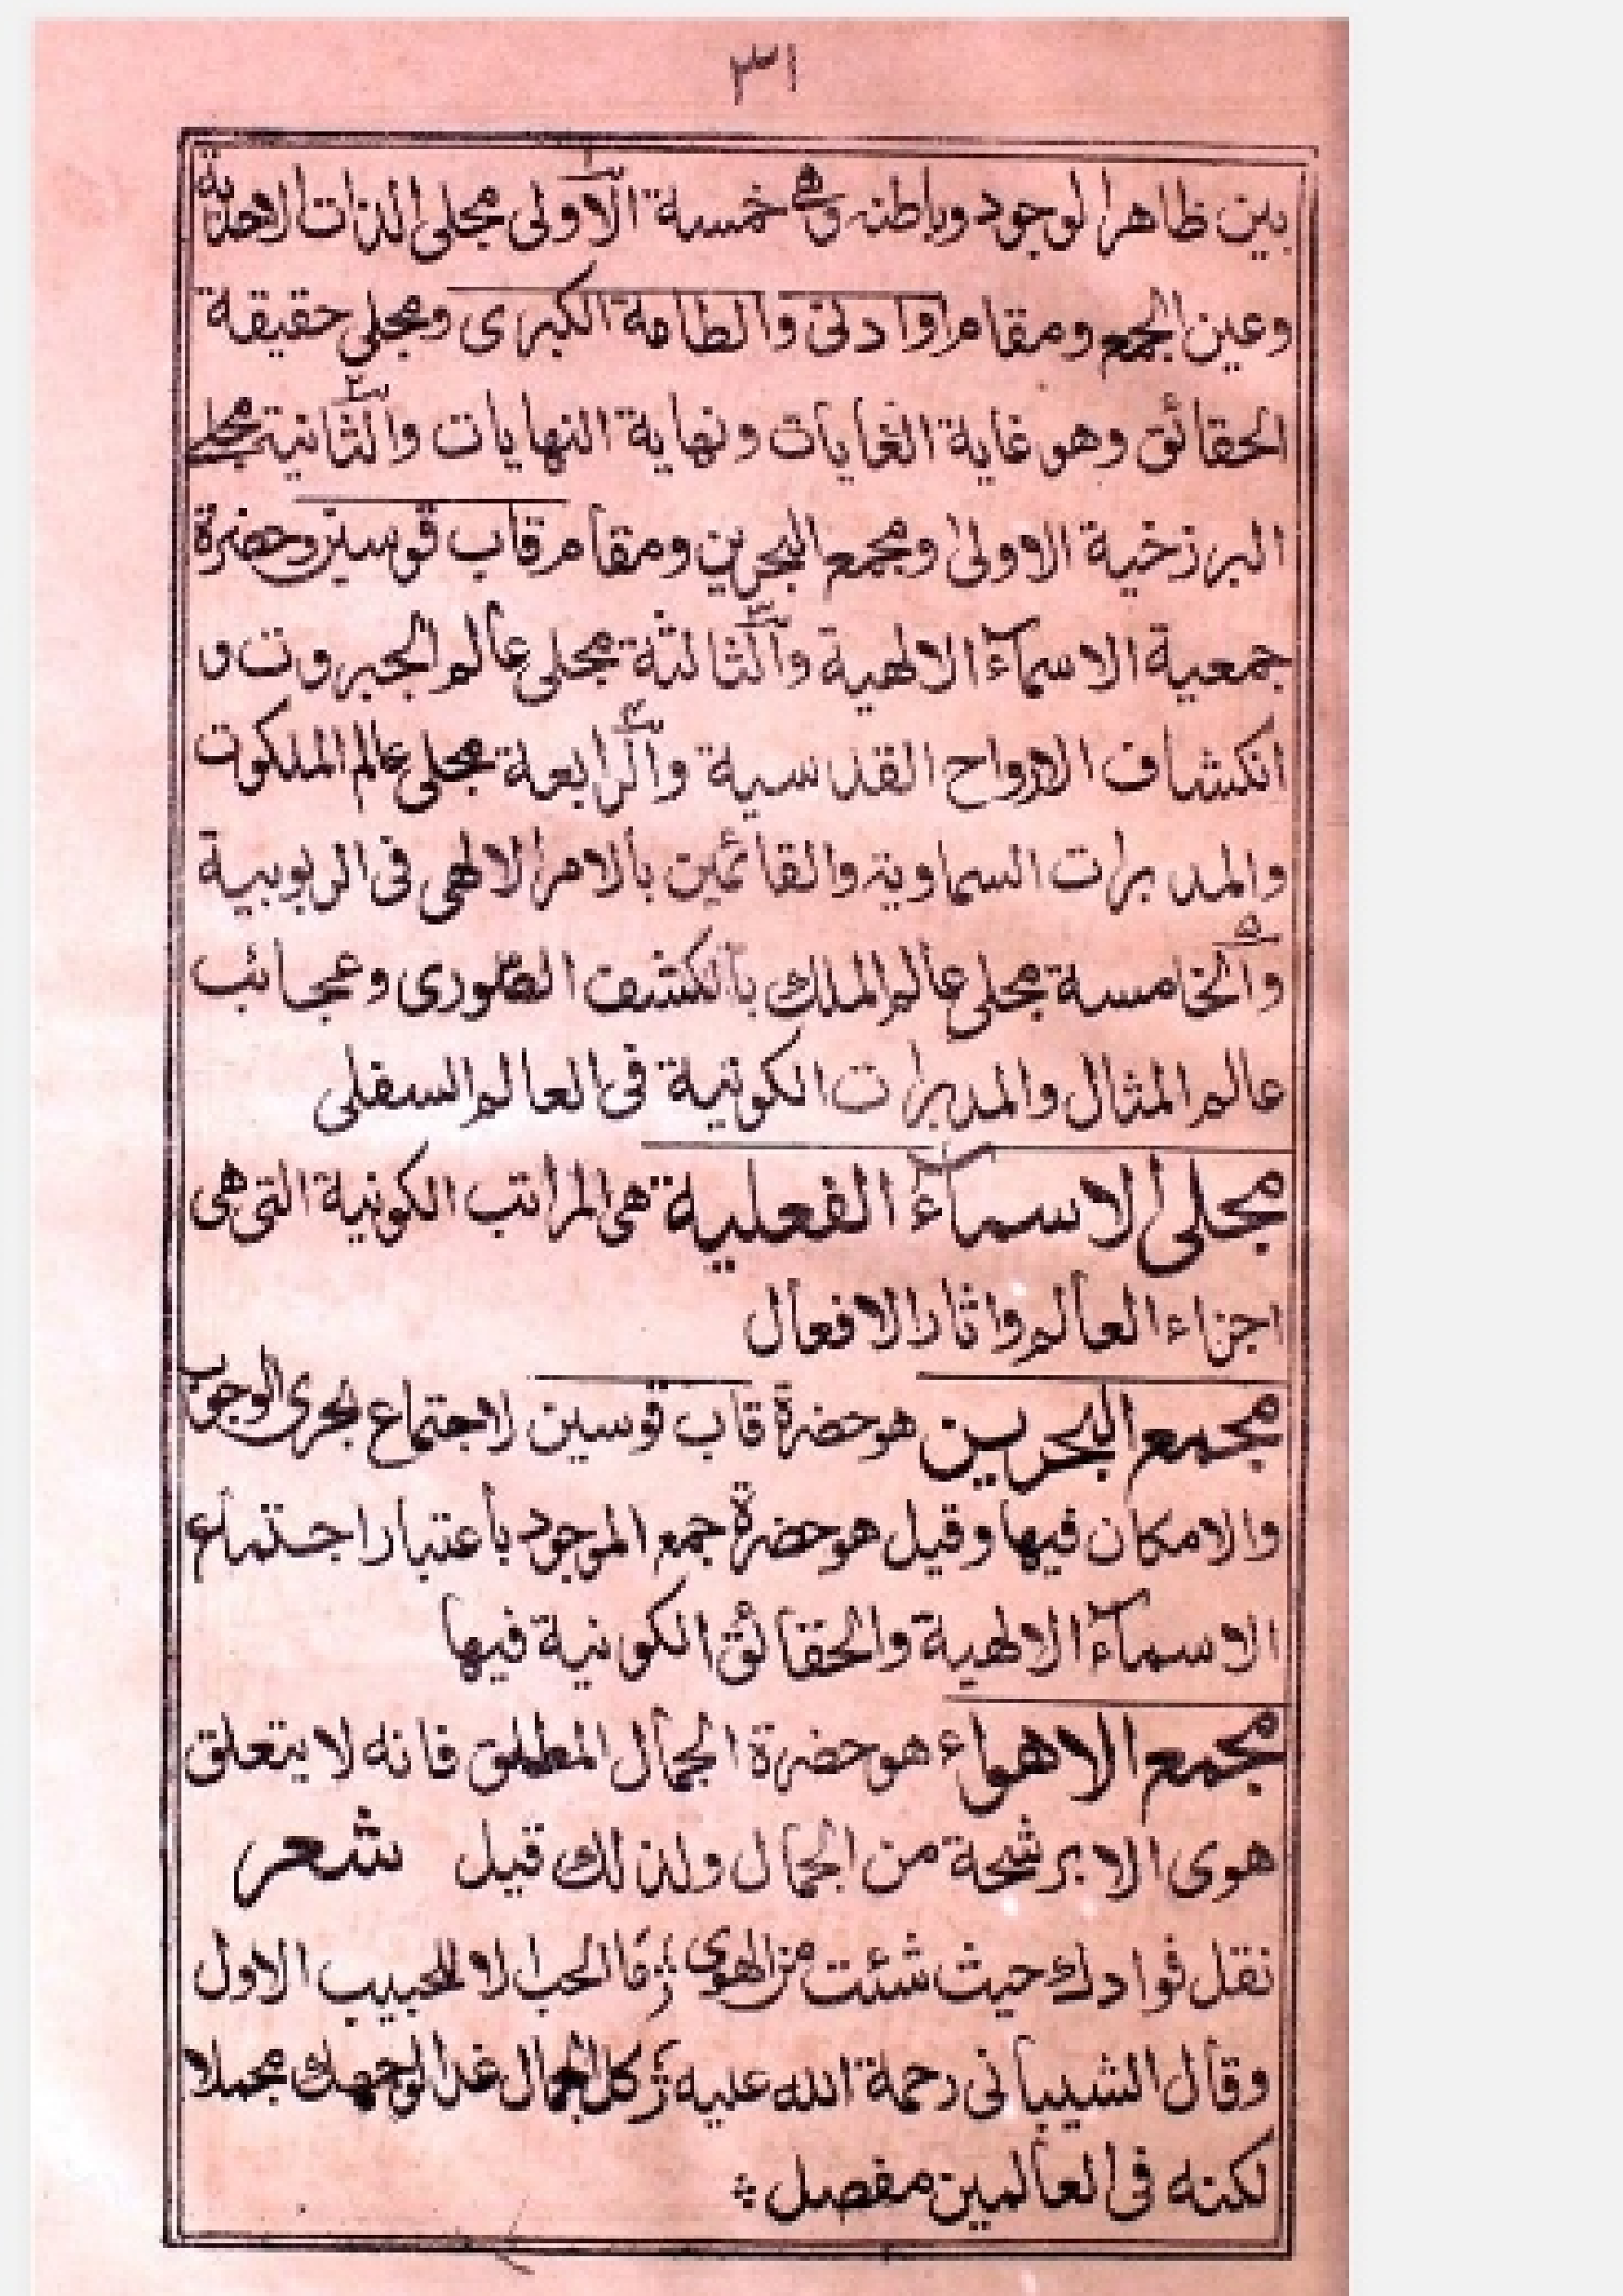 ٣١
بين ظاهر الوجود وباطنه وهى خمسة الاولى مجلى الذات الاحدية
وعين الجمع ومقام اوادنى والطامة الكبرى ومجلى حقيقة
الحقائق وهو غاية الغايات ونهاية النهايات والثانية مجلى
البرزخية الاولى ومجمع البحرين ومقام قاب قوسين وحضرة
جمعية الاسمآء الالهية والثالثة مجلى عالم الجبروت و
انكشاف الارواح القدسية والرابعة مجلى عالم الملكوت
والمدبرات السماوية والقائمين بالامر الالهى فى الربوبية
والخامسة مجلى عالم الملك بالكشف الصورى وعجائب
عالم المثال والمدبرات الكونية فى العالم السفلى
مجلى الاسمآء الفعلية هى المراتب الكونية التى هى
اجزاء العالم واثار الافعال
مجمع البحرين هو حضرة قاب قوسين لاجتماع بحرى الوجوب
والامكان فيها وقيل هو حضرة جمع الموجود باعتبار اجتماع
الاسمآء الالهية والحقائق الكونية فيها
مجمع الاهواء هو حضرة الجمال المطلق فانه لا يتعلق
هوى الا برشحة من الجمال ولذلك قيل شعر
نقل فوادك حيث شئت من الهوى ما الحب الا للحبيب الاول
وقال الشيبانى رحمة الله عليه كل الجمال غدا لوجهك مجملا
لكنه فى العالمين مفصل